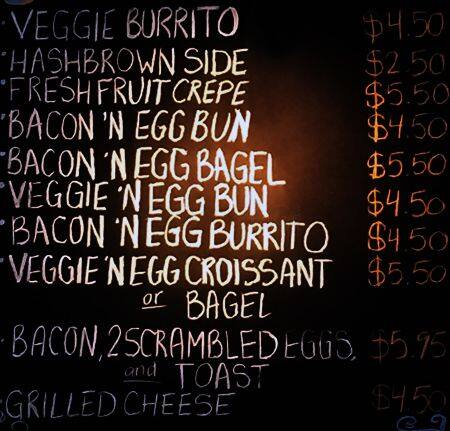 VEGGIE BURRITO $4.50
HASHBROWN SIDE $2.50
FRESH FRUIT CREPE $5.50
BACON 'N EGG BUN $4.50
BACON 'N EGG BAGEL $5.50
VEGGIE 'N EGG BUN $4.50
BACON 'N EGG BURRITO $4.50
VEGGIE 'N EGG CROISSANT $5.50
or BAGEL
BACON, 2 SCRAMBLED EGGS, $5.95
and TOAST
GRILLED CHEESE $4.50